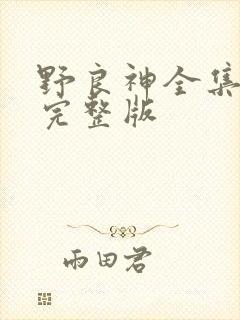 野良神全集
完整版
雨田君